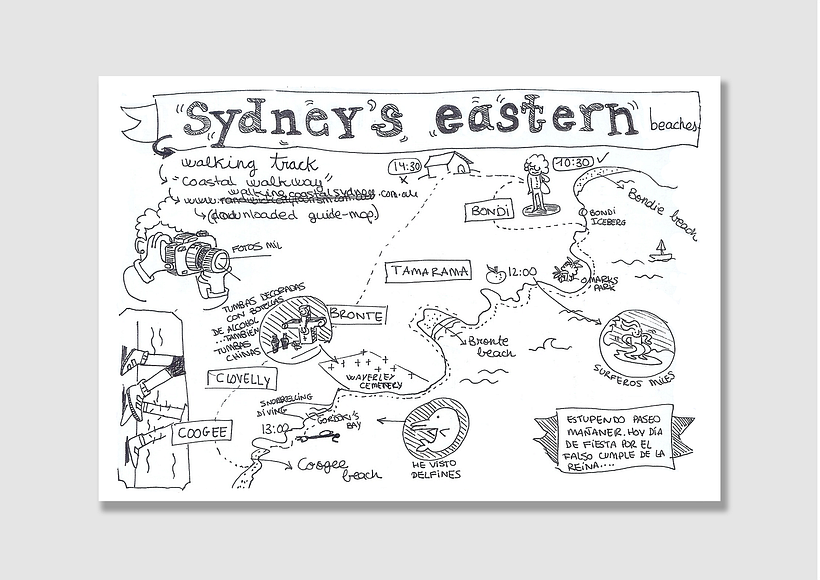 "Sydney's eastern beaches
walking track
"Coastal walkway"
walking coastal sydney.com.au
www.
(downloaded guide-map)
14:30
x
10:30 ✓
BONDI
Bondie beach
BONDI
ICEBERG
FOTOS MIL
TAMARAMA
12:00
MARKS
PARK
TUMBAS DECORADAS
CON BOTELLAS
DE ALCOHOL
...TAMBIÉN
TUMBAS
CHINAS
BRONTE
Bronte
beach
SURFEROS MILES
WAVERLEY
CEMETERY
CLOVELLY
SNORKELLING
DIVING
GORDON'S
BAY
13:00
COOGEE
Coogee
beach
HE VISTO
DELFINES
ESTUPENDO PASEO
MAÑANER. HOY DÍA
DE FIESTA POR EL
FALSO CUMPLE DE LA
REINA....